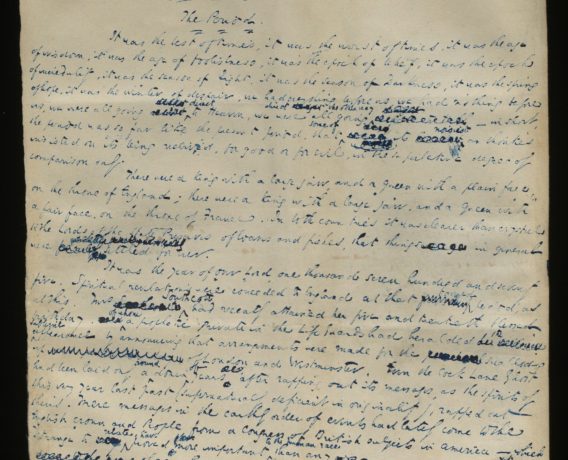 The Period.
It was the best of times, it was the worst of times, it was the age
of wisdom, it was the age of foolishness, it was the epoch of belief, it was the epoch
of incredulity, it was the season of Light, it was the season of Darkness, it was the spring
of hope, it was the winter of despair, we had everything before us, we had nothing before
us, we were all going direct to Heaven, we were all going direct
the period was so far like the present period, that some of its noisiest authorities
insisted on its being received, for good or for evil, in the superlative degree of
comparison only.
There were a king with a large jaw, and a queen with a plain face,
on the throne of England; there were a king with a large jaw, and a queen with
a fair face, on the throne of France. In both countries it was clearer than crystal
to the Lords of the State Preserves of loaves and fishes, that things in general
were settled for ever.
It was the year of our Lord one thousand seven hundred and seventy
five. Spiritual revelations were conceded to England at that period, as
at this. Mrs Southcott had recently attained her five and twentieth blessed
a prophetic private in the Life Guards had heralded the
by announcing that arrangements were made for the swallowing
of London and Westminster. Even the Cock Lane Ghost
had been laid only a round dozen of years, after rapping out its messages, as the spirits of
this very year last past (supernaturally deficient in originality) rapped out
theirs. Mere messages in the earthly order of events had lately come to the
English crown and People from a Congress of British subjects in America — which
strange to relate, have proved more important to the human race than any